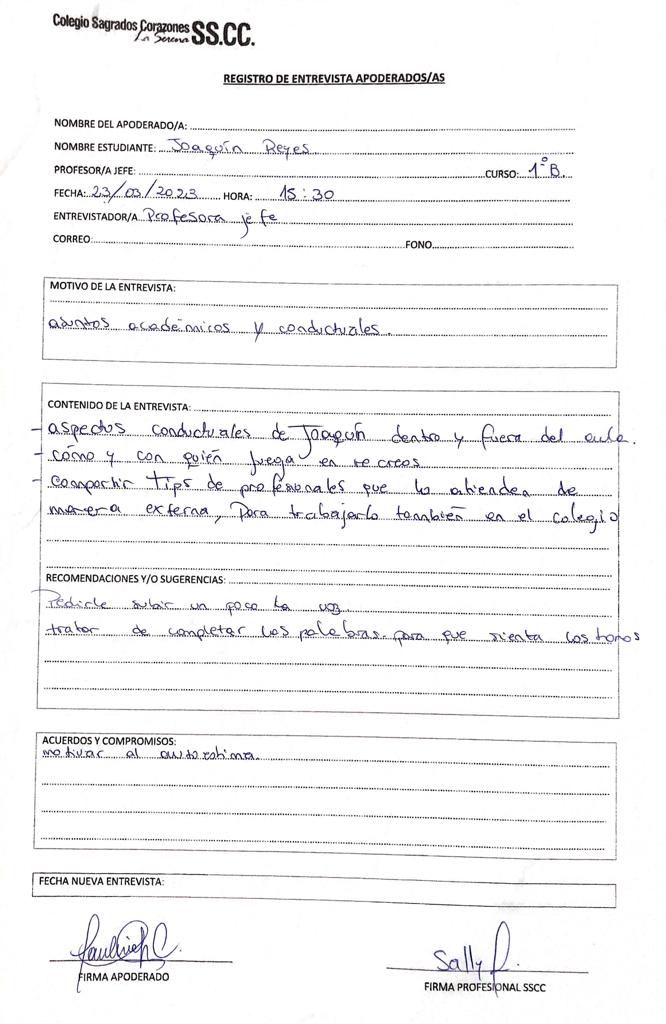 Colegio Sagrados Corazones SS.CC.
La Serena
REGISTRO DE ENTREVISTA APODERADOS/AS
NOMBRE DEL APODERADO/A:
NOMBRE ESTUDIANTE: Joaquín Reyes
PROFESOR/A JEFE: CURSO: 1°B.
FECHA: 23/03/2023 HORA: 15:30
ENTREVISTADOR/A Profesora jefe
CORREO: FONO
MOTIVO DE LA ENTREVISTA:
asuntos académicos y conductuales.
CONTENIDO DE LA ENTREVISTA:
- aspectos conductuales de Joaquín dentro y fuera del aula.
- cómo y con quién juega en recreos
- compartir tips de profesionales que lo atienden de
manera externa, para trabajarlo también en el colegio
RECOMENDACIONES Y/O SUGERENCIAS:
Pedirle subir un poco la voz
tratar de completar las palabras para que sienta los tonos
ACUERDOS Y COMPROMISOS:
motivar al autoestima.
FECHA NUEVA ENTREVISTA:
Sally
FIRMA APODERADO
FIRMA PROFESIONAL SSCC